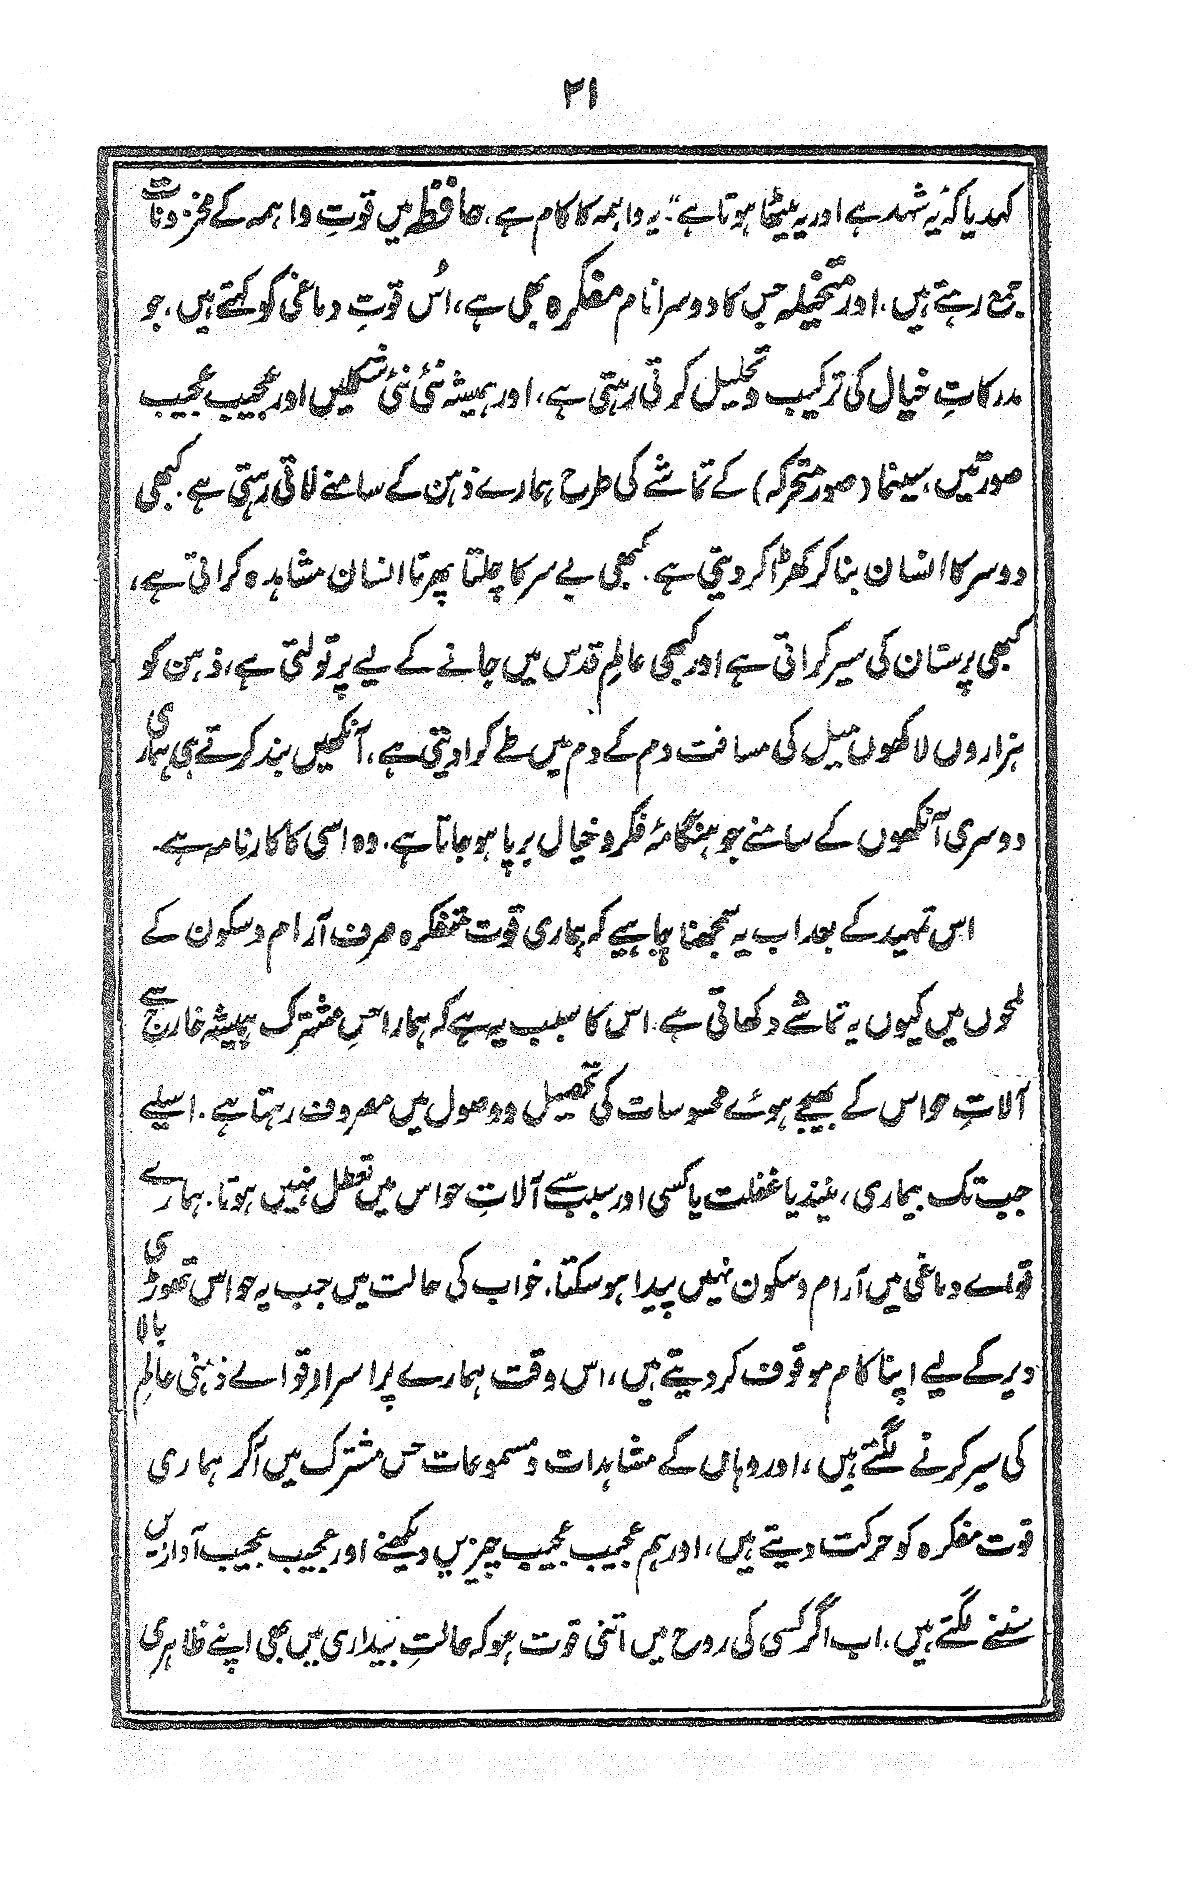 ۲۱
کہدیا کہ یہ شہد ہے اور یہ میٹھا ہوتا ہے"۔ یہ واہمہ کا کام ہے، حافظہ میں قوتِ واہمہ کے مخزونات
جمع رہتے ہیں، اور متخیلہ جس کا دوسرا نام مفکرہ بھی ہے، اُس قوتِ دماغی کو کہتے ہیں، جو
مدرکاتِ خیال کی ترکیب و تحلیل کرتی رہتی ہے، اور ہمیشہ نئی نئی شکلیں اور عجیب عجیب
صورتیں، سینما (صور متحرکہ) کے تماشے کی طرح ہمارے ذہن کے سامنے لاتی رہتی ہے۔ کبھی
دو سر کا انسان بنا کر کھڑا کر دیتی ہے۔ کبھی بے سر کا چلتا پھرتا انسان مشاہدہ کراتی ہے،
کبھی پرستان کی سیر کراتی ہے اور کبھی عالمِ قدس میں جانے کے لیے پر تولتی ہے، ذہن کو
ہزاروں لاکھوں میل کی مسافت دم کے دم میں طے کرا دیتی ہے، آنکھیں بند کرتے ہی ہماری
دوسری آنکھوں کے سامنے جو ہنگامۂ فکر و خیال برپا ہو جاتا ہے۔ وہ اسی کا کارنامہ ہے۔
اس تمہید کے بعد اب یہ سمجھنا چاہیے کہ ہماری قوت متفکرہ صرف آرام و سکون کے
لمحوں میں کیوں یہ تماشے دکھاتی ہے۔ اس کا سبب یہ ہے کہ ہمارا حسِ مشترک ہمیشہ خارج سے
آلاتِ حواس کے بھیجے ہوئے محسوسات کی تحصیل و وصول میں مصروف رہتا ہے۔ اسلیے
جب تک بیماری، نیند یا غفلت یا کسی اور سبب سے آلاتِ حواس میں تعطل نہیں ہوتا۔ ہمارے
قوائے دماغی میں آرام و سکون نہیں پیدا ہو سکتا۔ خواب کی حالت میں جب یہ حواس تھوڑی
دیر کے لیے اپنا کام موقوف کر دیتے ہیں، اس وقت ہمارے پراسرار قوائے ذہنی عالمِ بالا
کی سیر کرنے لگتے ہیں، اور وہاں کے مشاہدات و مسموعات حس مشترک میں آکر ہماری
قوت مفکرہ کو حرکت دیتے ہیں، اور ہم عجیب عجیب چیزیں دیکھنے اور عجیب عجیب آوازیں
سننے لگتے ہیں۔ اب اگر کسی کی روح میں اتنی قوت ہو کہ حالتِ بیداری میں بھی اپنے ظاہری